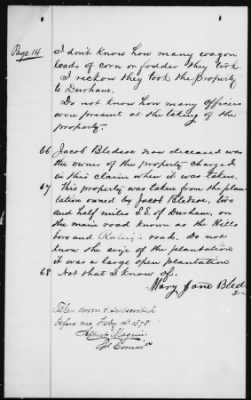 Page 14
I don't know how many wagon
loads of corn or fodder they took
I reckon they took the property
to Durham.
Do not know how many officers
were present at the taking of the
property.
66 Jacob Bledsoe now deceased was
the owner of the property charged
in this claim when it was taken.
67 This property was taken from the plan
tation owned by Jacob Bledsoe, two
and half miles S.E. of Durham, on
the main road known as the Hills
boro and Raleigh road. Do not
know the size of the plantation
it was a large open plantation
68 Not that I know of.
Mary Jane Bled
Taken sworn & subscribed
before me Feby 4th 1878